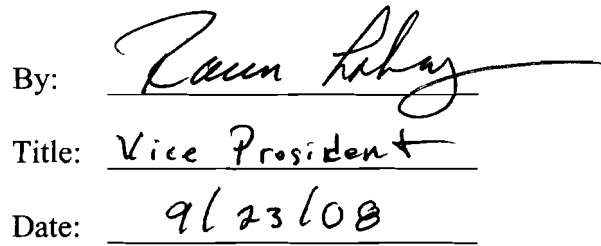 By:
Title: Vice President
Date: 9/23/08